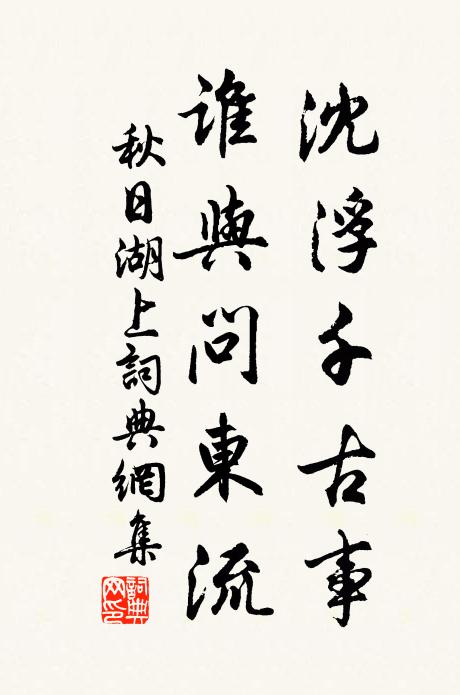 沈浮千古事
誰與問東流
秋日湖上詞典網集
詞典網印